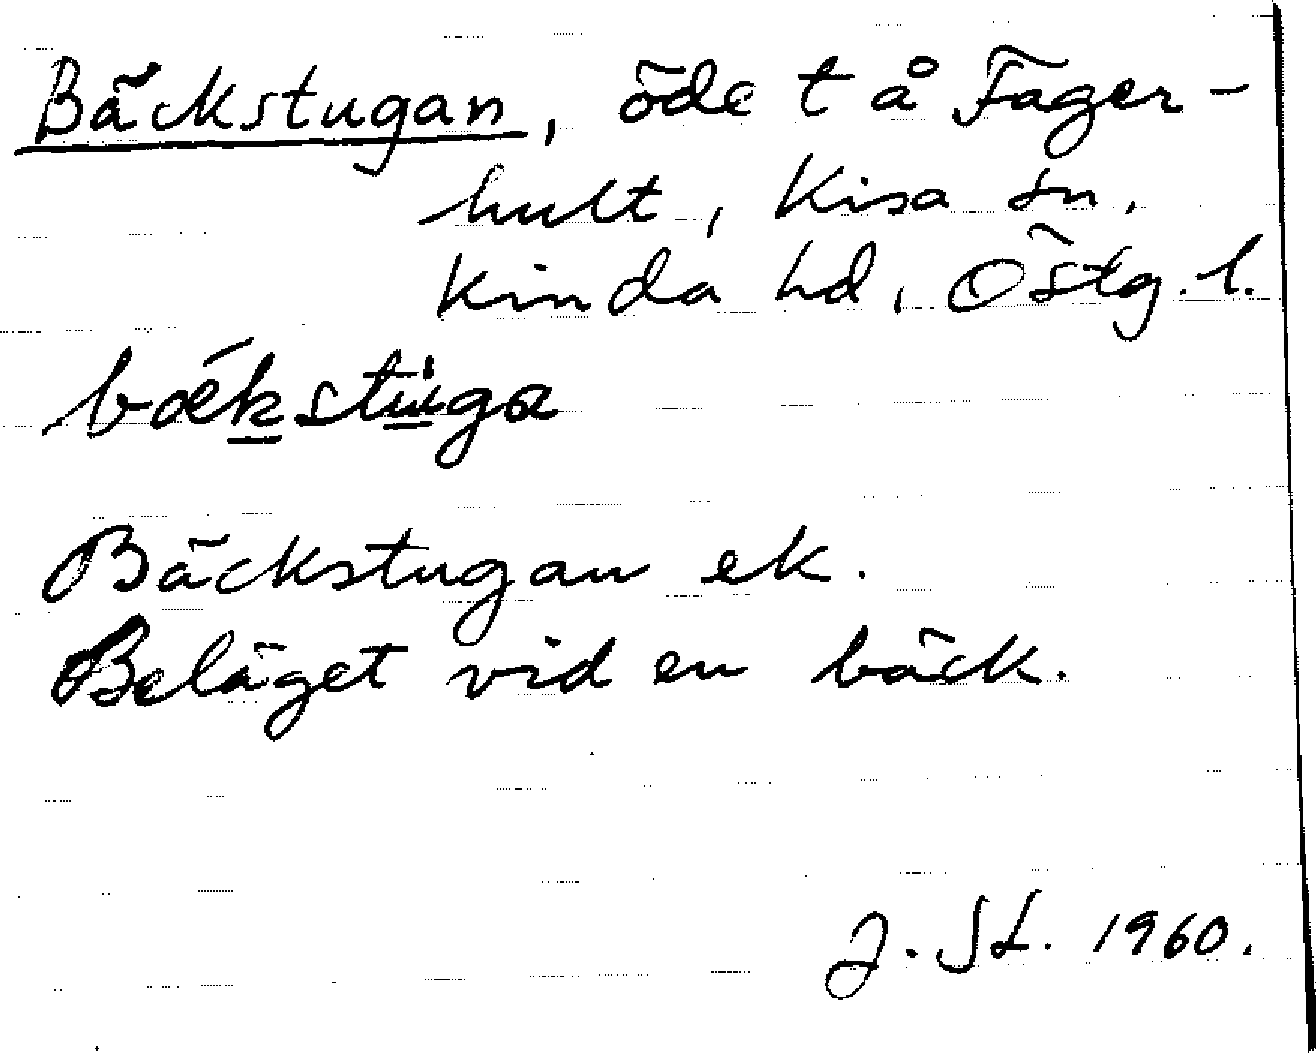 Bäckstugan, öde t å Fager-
hult, Kisa sn,
Kinda hd, Östg. l.
Bäckstugan ek.
Beläget vid en bäck.
J. St. 1960.